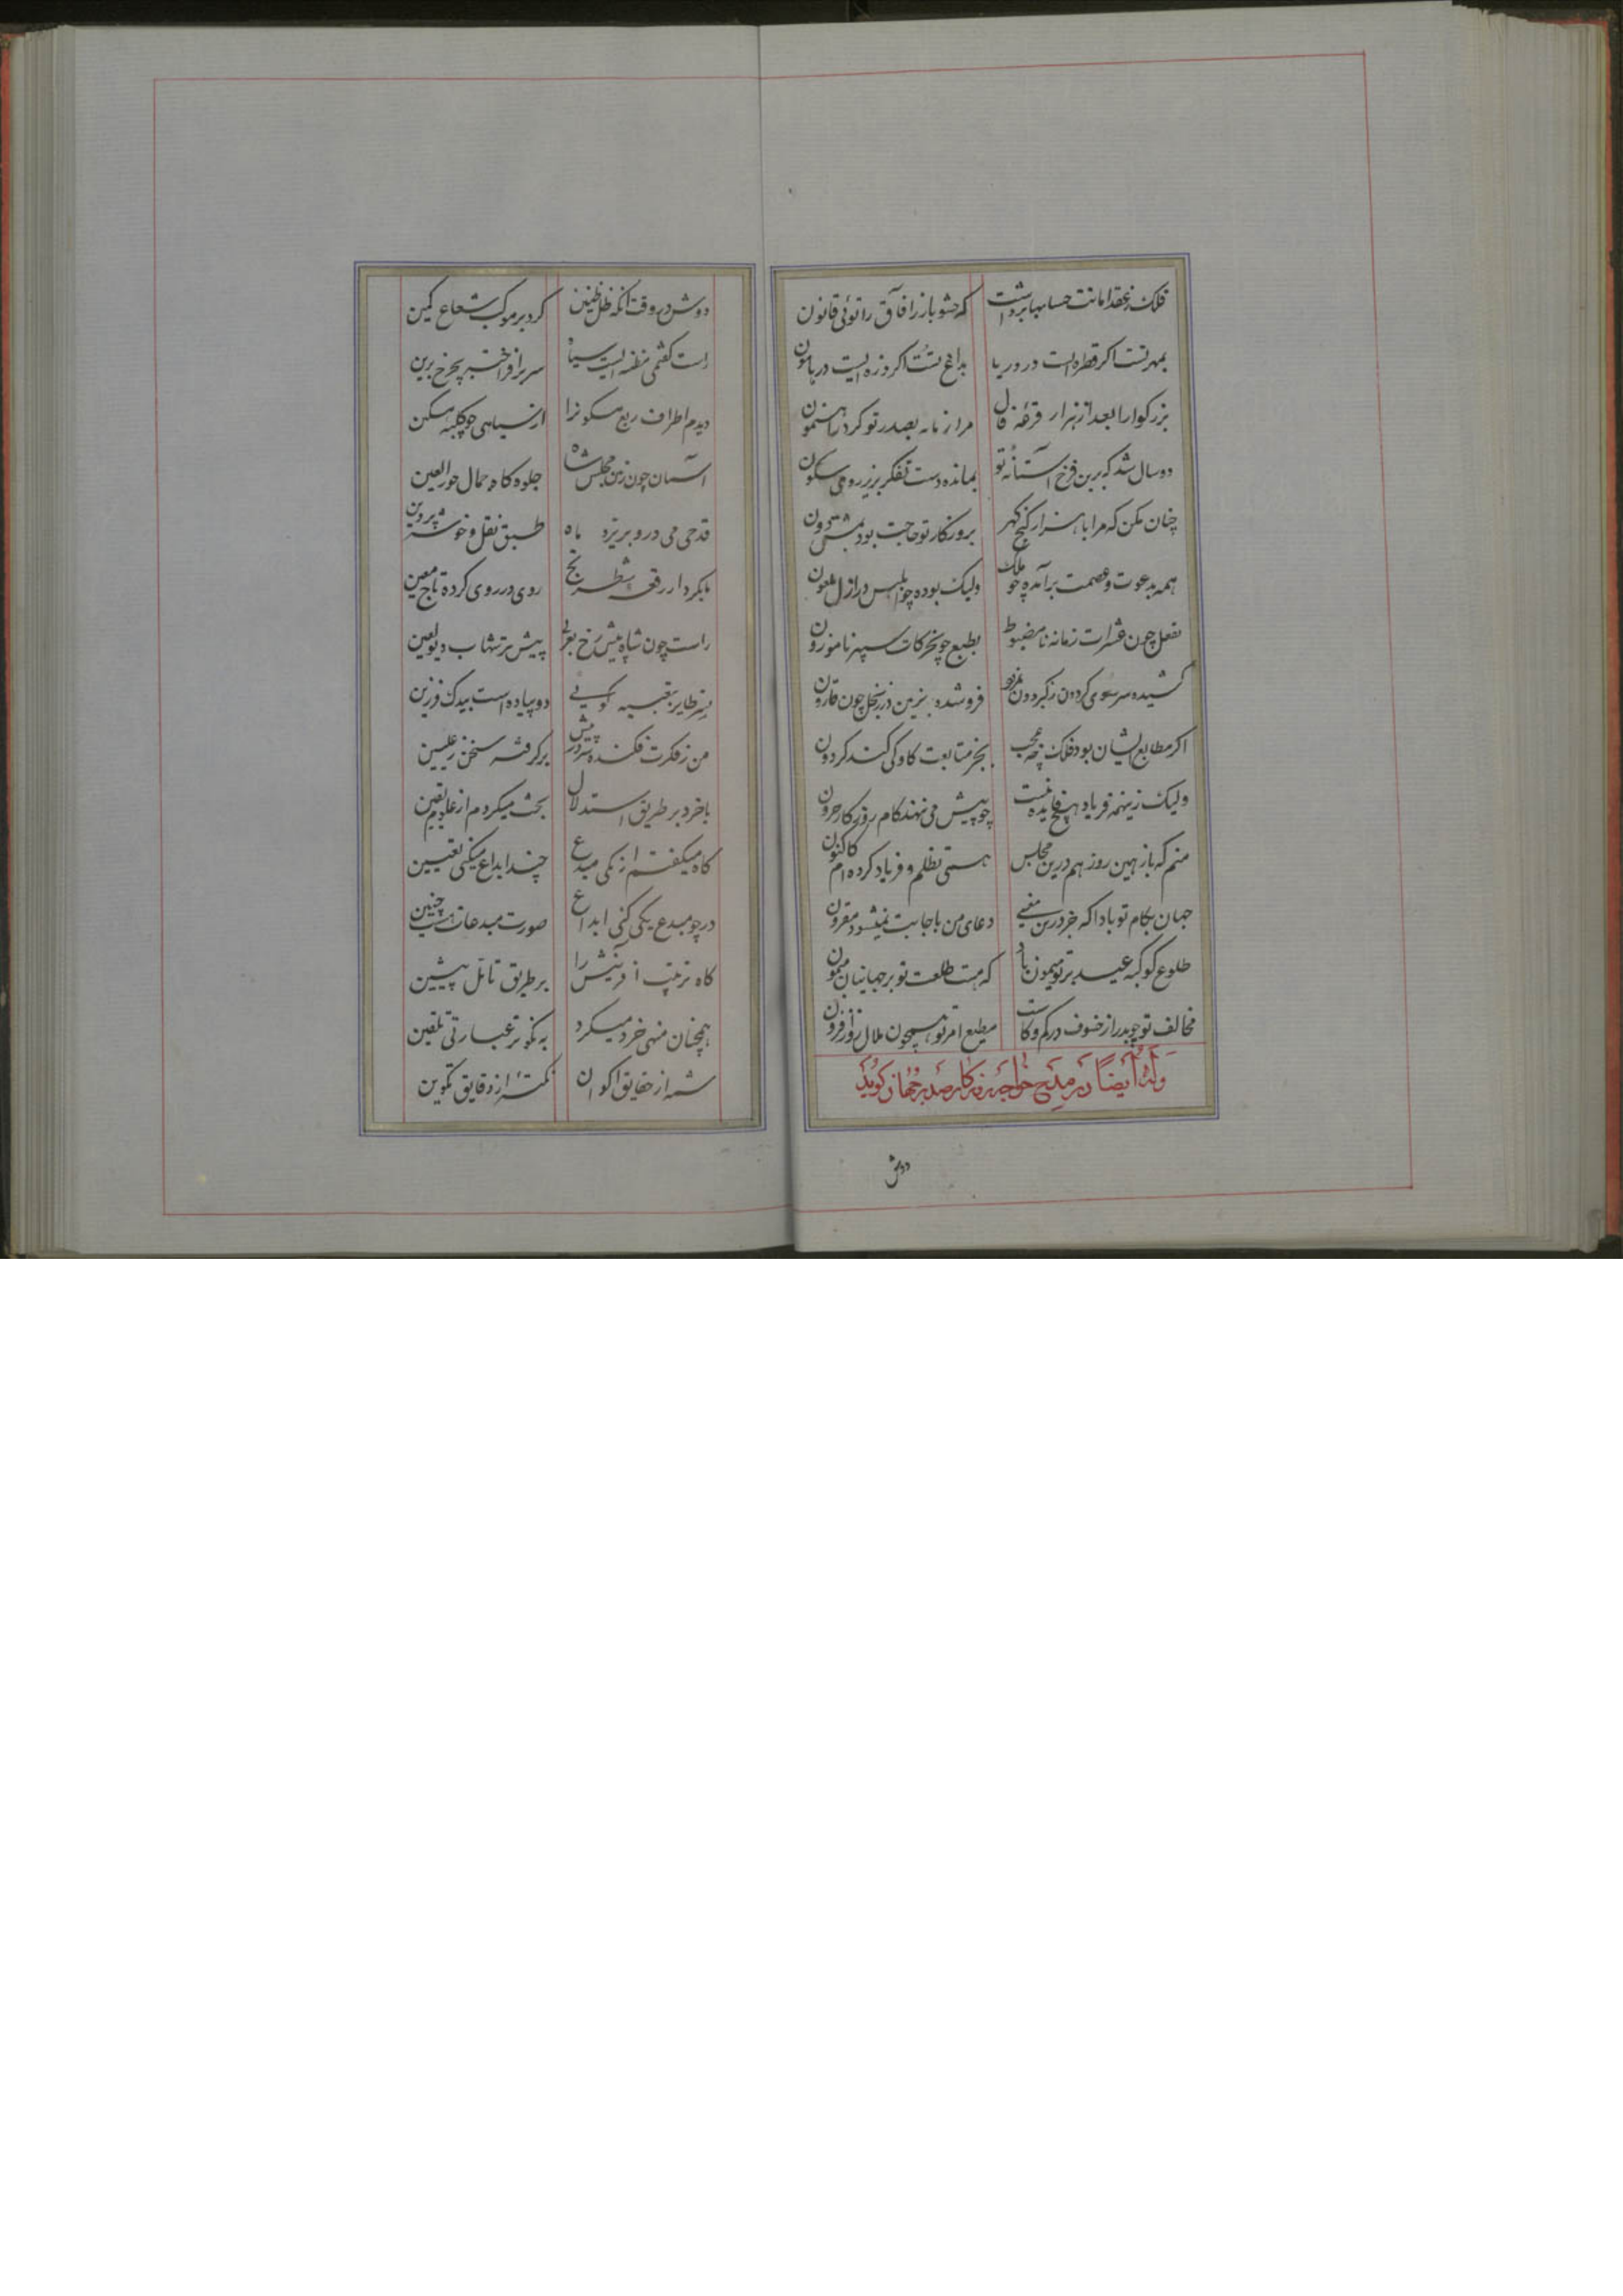 فلک ز عقد امانت حسابها برداشت که حشو بارز آفاق را توئی قانون
بمهر تست اگر قطره ایست در دریا بداغ تست اگر ذره ایست در هامون
بزرکوارا بعد از هزار قرعه فال مرا زمانه بصدر تو کرد راهنمون
دو سال شد که برین فرخ آستانه تو بمانده دست تفکر بزیر روی ستون
چنان مکن که مرا با هزار کنج کهر بروزکار تو حاجت بود بمشتی دون
همه بدعوت و عصمت برآمده چو ملک ولیک بوده چو ابلیس در ازل ملعون
بفعل چون عثرات زمانه نامضبوط بطبع چو حرکات سپهر ناموزون
کشیده سر سوی کردون ز کبر چون نمرود فرو شده بزمین در ز بخل چون قارون
اکر مطابع ایشان بود فلک چه عجب بجز متابعت کاو کی کند کردون
ولیک زینهمه فریاد هیچ فایده نیست چو پیش می ننهد کام روزکار حرون
منم که باز همین روز هم درین مجلس همی تظلم و فریاد کرده ام کاکنون
جهان بکام تو بادا که جز درین معنی دعای من باجابت نمیشود مقرون
طلوع کوکبه عید بر تو میمون باد که هست طلعت تو بر جهانیان میمون
مخالف تو چو بدر از خسوف در کم و کاست مطیع امر تو همچون هلال روزافزون
وله ایضا در مدح خواجه بزرکوار صدر جهان کوید
دوش
دوش در وقت آنکه ظل زمین کرد بر موکب شعاع کمین
راست کفتی مظله ایست سیاه سر برافراخته بچرخ برین
دیدم اطراف ربع مسکونرا از سیاهی چو کلبه مسکین
آسمان چون زمین مجلس شاه جلوه کاه جمال حورالعین
قدحی می درو بریزه ماه طبق نقل و خوشه پروین
یا بکردار رقعه شطرنج روی در روی کرده تاج معین
راست چون شاه پیش رخ بعری پیش هر شهاب دیو لعین
نسر طایر بتعبیه کویی دو پیاده است بیدک فرزین
من ز فکرت فکنده سر در پیش برکرفته سخن ز علیین
با خرد بر طریق استدلال بحث میکردم از علوم یقین
کاه میکفتم از یکی مبدع چند ابداع میکنی تعیین
ور چو مبدع یکی کنی ابداع صورت مبدعات هست چنین
کاه ترتیب آفرینش را بر طریق تأمل پیشین
همچنان منهی خرد میکرد به نکوتر عبارتی تلقین
شمه از حقایق اکوان نکته از دقایق تکوین